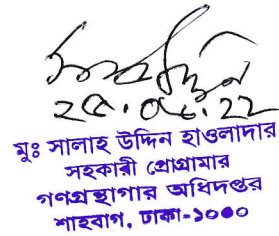 ২৫.০৬.২২
মুঃ সালাহ উদ্দিন হাওলাদার
সহকারী প্রোগ্রামার
গণগ্রন্থাগার অধিদপ্তর
শাহবাগ, ঢাকা-১০০০